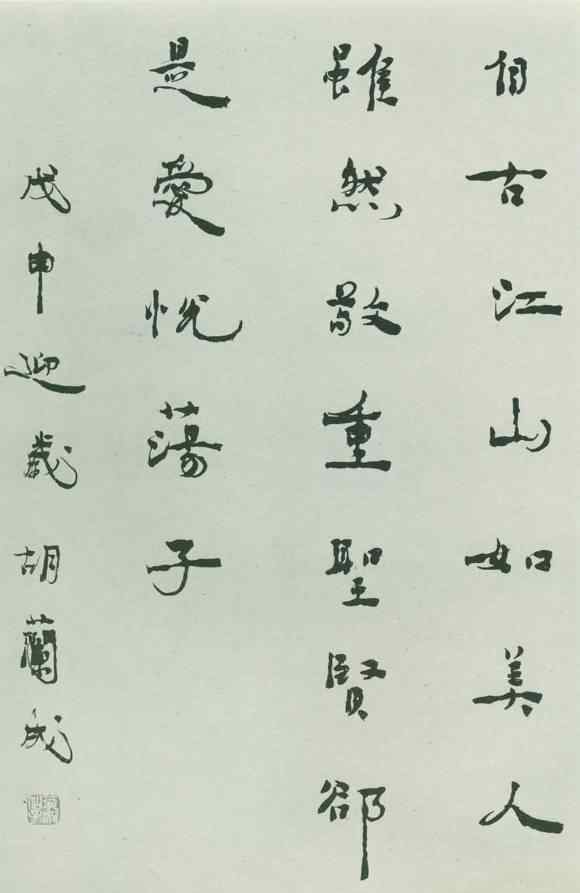 自古江山如美人
雖然敬重聖賢郤
是愛悅蕩子
戊申迎歲 胡蘭成